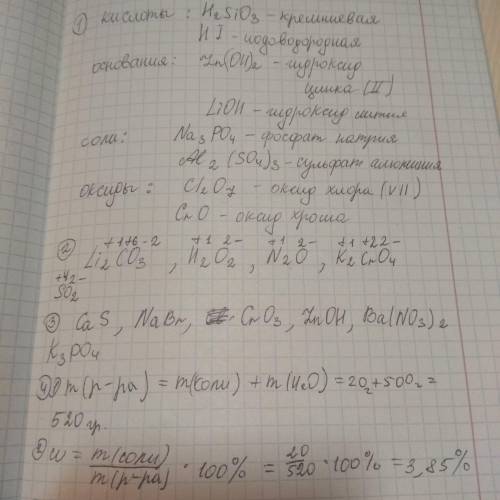 ① кислоты: H₂SiO₃ - кремниевая
HI - иодоводородная
основания: Zn(OH)₂ - гидроксид
цинка (II)
LiOH - гидроксид лития
соли: Na₃PO₄ - фосфат натрия
Al₂(SO₄)₃ - сульфат алюминия
оксиды: Cl₂O₇ - оксид хлора (VII)
CrO - оксид хрома
+1+6-2 +1 2- +1 2- +1+22-
② Li₂CO₃, H₂O₂, N₂O, K₂CrO₄
+42-
SO₂
③ CaS, NaBr, CrO₃, ZnOH, Ba(NO₃)₂
K₃PO₄
④ 1) m(р-ра) = m(соли) + m(H₂O) = 20г+500г =
520гр.
2) w = m(соли)/m(р-ра) · 100% = 20/520 · 100% = 3,85%